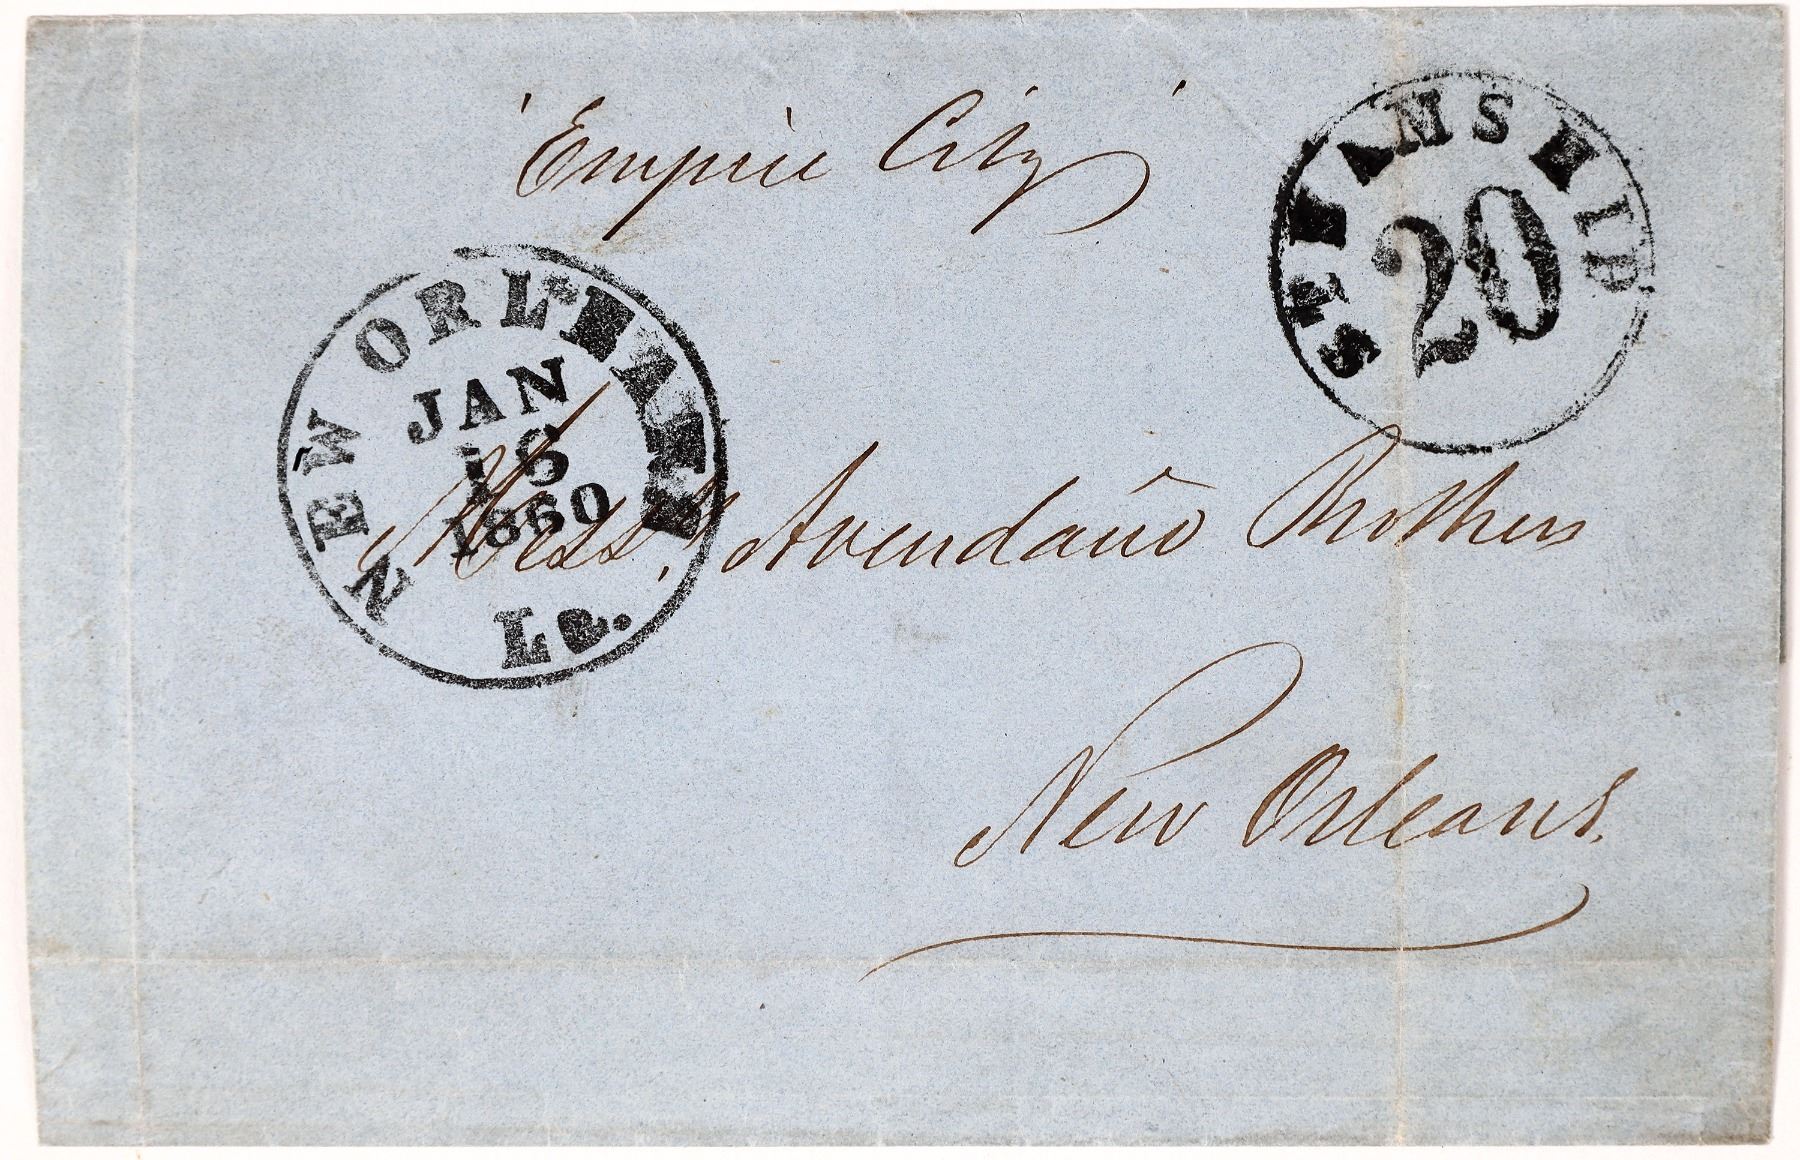 'Empire City'
STEAMSHIP
20
NEW ORLEANS
JAN
1860
La.
Mess.rs Avendaño Brothers
New Orleans.